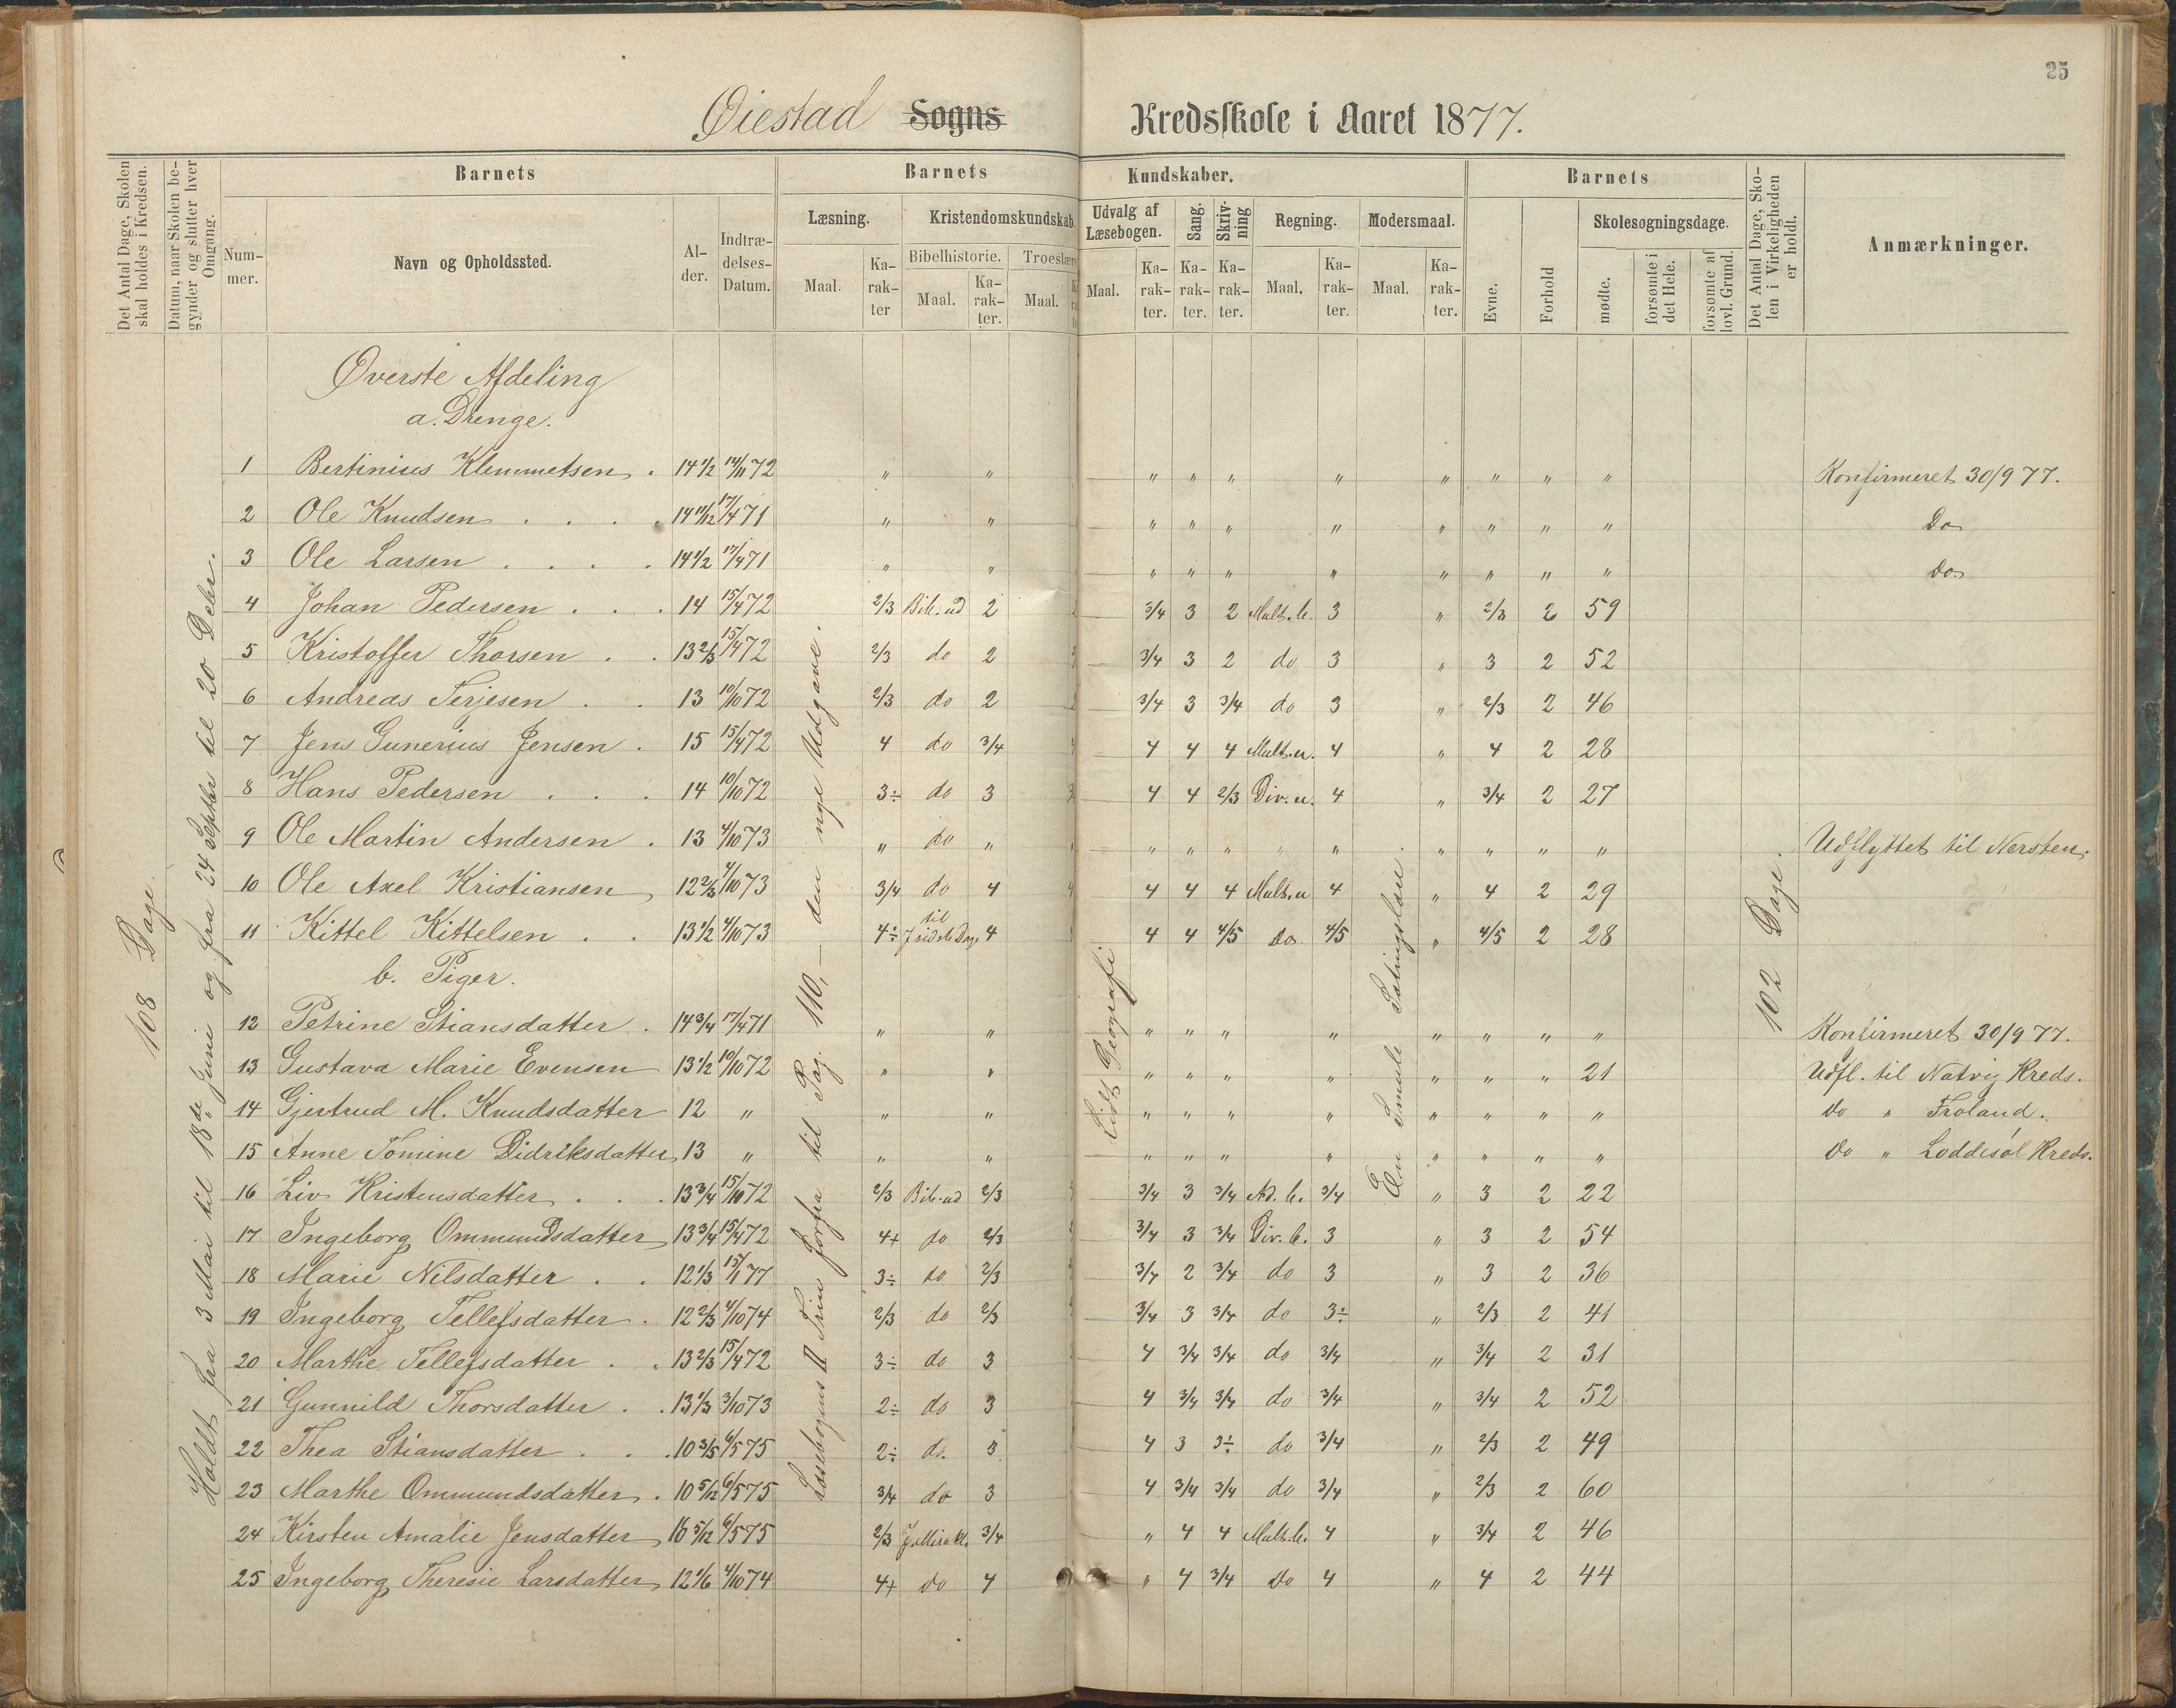 25
Øiestad Sogns Kredsskole i Aaret 1877.
Det Antal Dage, Skolen skal holdes i Kredsen.
Datum, naar Skolen begynder og slutter hver Omgang.
Barnets
Nummer.
Navn og Opholdssted.
Alder.
Indtrædelses-Datum.
Barnets Kundskaber.
Læsning.
Maal.
Karakter
Kristendomskundskab.
Bibelhistorie.
Maal.
Karakter.
Troeslære
Maal.
Udvalg af Læsebogen.
Maal.
Karakter.
Sang.
Karakter.
Skrivning
Karakter.
Regning.
Maal.
Karakter.
Modersmaal.
Maal.
Karakter.
Barnets
Evne.
Forhold
Skolesøgningsdage.
mødte.
forsømte i det Hele.
forsømte af lovl. Grund.
Det Antal Dage, Skolen i Virkeligheden er holdt.
Anmærkninger.
108 Dage.
Holdt fra 3 Mai til 18de Juni og fra 24 Septbr til 20 Debr.
Læsebogens II Trin forfra til Pag. 110, – den nye Udgave.
Lidt Geografi
En Smule Sætningslære.
102 Dage.
Øverste Afdeling
a. Drenge.
1 Bertinius Klemmetsen . 14 1/2 14/11 72 " " " " " " " " " " Konfirmeret 30/9 77.
2 Ole Knudsen . . . . 14 11/12 17/4 71 " " " " " " " " " " Do
3 Ole Larsen . . . . 14 1/2 17/4 71 " " " " " " " " " " Do
4 Johan Pedersen . . . 14 15/4 72 2/3 Bib. ud 2 3/4 3 2 Mult. b. 3 " 2/3 2 59
5 Kristoffer Thorsen . . 13 2/3 15/4 72 2/3 do 2 3/4 3 2 do 3 " 3 2 52
6 Andreas Terjesen . . 13 10/10 72 2/3 do 2 3/4 3 3/4 do 3 " 2/3 2 46
7 Jens Gunerius Jensen . 15 15/4 72 4 do 3/4 4 4 4 Mult. u. 4 " 4 2 28
8 Hans Pedersen . . . 14 10/10 72 3÷ do 3 4 4 2/3 Div. u. 4 " 3/4 2 27
9 Ole Martin Andersen . 13 4/10 73 " do " " " " " " " " " " Udflyttet til Nersten.
10 Ole Axel Kristiansen 12 2/3 4/10 73 3/4 do 4 4 4 4 Mult. u 4 " 4 2 29
11 Kittel Kittelsen . . 13 1/2 4/10 73 4÷ til J sidste Dage 4 4 4 4/5 Do 4/5 " 4/5 2 28
b. Piger.
12 Petrine Stiansdatter . 14 3/4 17/4 71 " " " " " " " " " " Konfirmeret 30/9 77.
13 Gustava Marie Evensen 13 1/2 10/10 72 " " " " " " " " " 21 Udfl. til Natvig Kreds.
14 Gjertrud M. Knudsdatter 12 " " " " " " " " " " " do " Froland.
15 Anne Tomine Didriksdatter 13 " " " " " " " " " " " do " Loddesøl Kreds.
16 Liv Kristensdatter . . . 13 3/4 15/10 72 2/3 Bib. ud 2/3 3/4 3 3/4 Ad. b. 3/4 " 3 2 22
17 Ingeborg Ommundsdatter 13 3/4 15/4 72 4+ do 2/3 3/4 3 3/4 Div. b. 3 " 3 2 54
18 Marie Nilsdatter . . 12 1/3 15/1 77 3÷ do 2/3 3/4 2 3/4 do 3 " 3 2 36
19 Ingeborg Tellefsdatter . 12 2/3 4/10 74 2/3 do 2/3 3/4 3 3/4 do 3÷ " 2/3 2 41
20 Marthe Tellefsdatter . . 13 2/3 15/4 72 3÷ do 3 4 3/4 3/4 do 3/4 " 3/4 2 31
21 Gunnild Thorsdatter . . 13 1/3 3/10 73 2÷ do 3 4 3/4 3/4 do 3/4 " 3/4 2 52
22 Thea Stiansdatter . . . 10 3/5 6/5 75 2÷ do. 3 4 3 3÷ do 3/4 " 2/3 2 49
23 Marthe Ommundsdatter . 10 5/12 6/5 75 3/4 do 3 4 3/4 3/4 do 3/4 " 2/3 2 60
24 Kirsten Amalie Jensdatter 10 5/12 6/5 75 2/3 J. Mirakl. 3/4 " 4 4 Mult. b. 4 " 3/4 2 46
25 Ingeborg Theresie Larsdatter 12 1/6 4/10 74 4+ do 4 " 4 3/4 Do 4 " 4 2 44